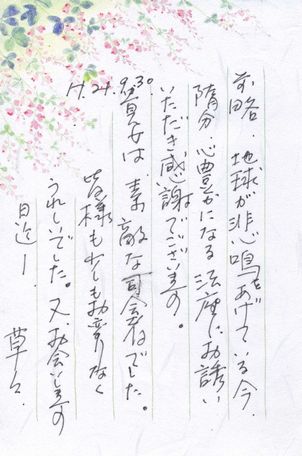 前略、地球が悲鳴をあげている今、
随分、心豊かになる法座にお誘い
いただき感謝でございます。
H.24.9.30
貴女は素敵な司会者でした。
皆様もとてもお変りなく
うれしいでした。又、お会いします
日迄ー 草々